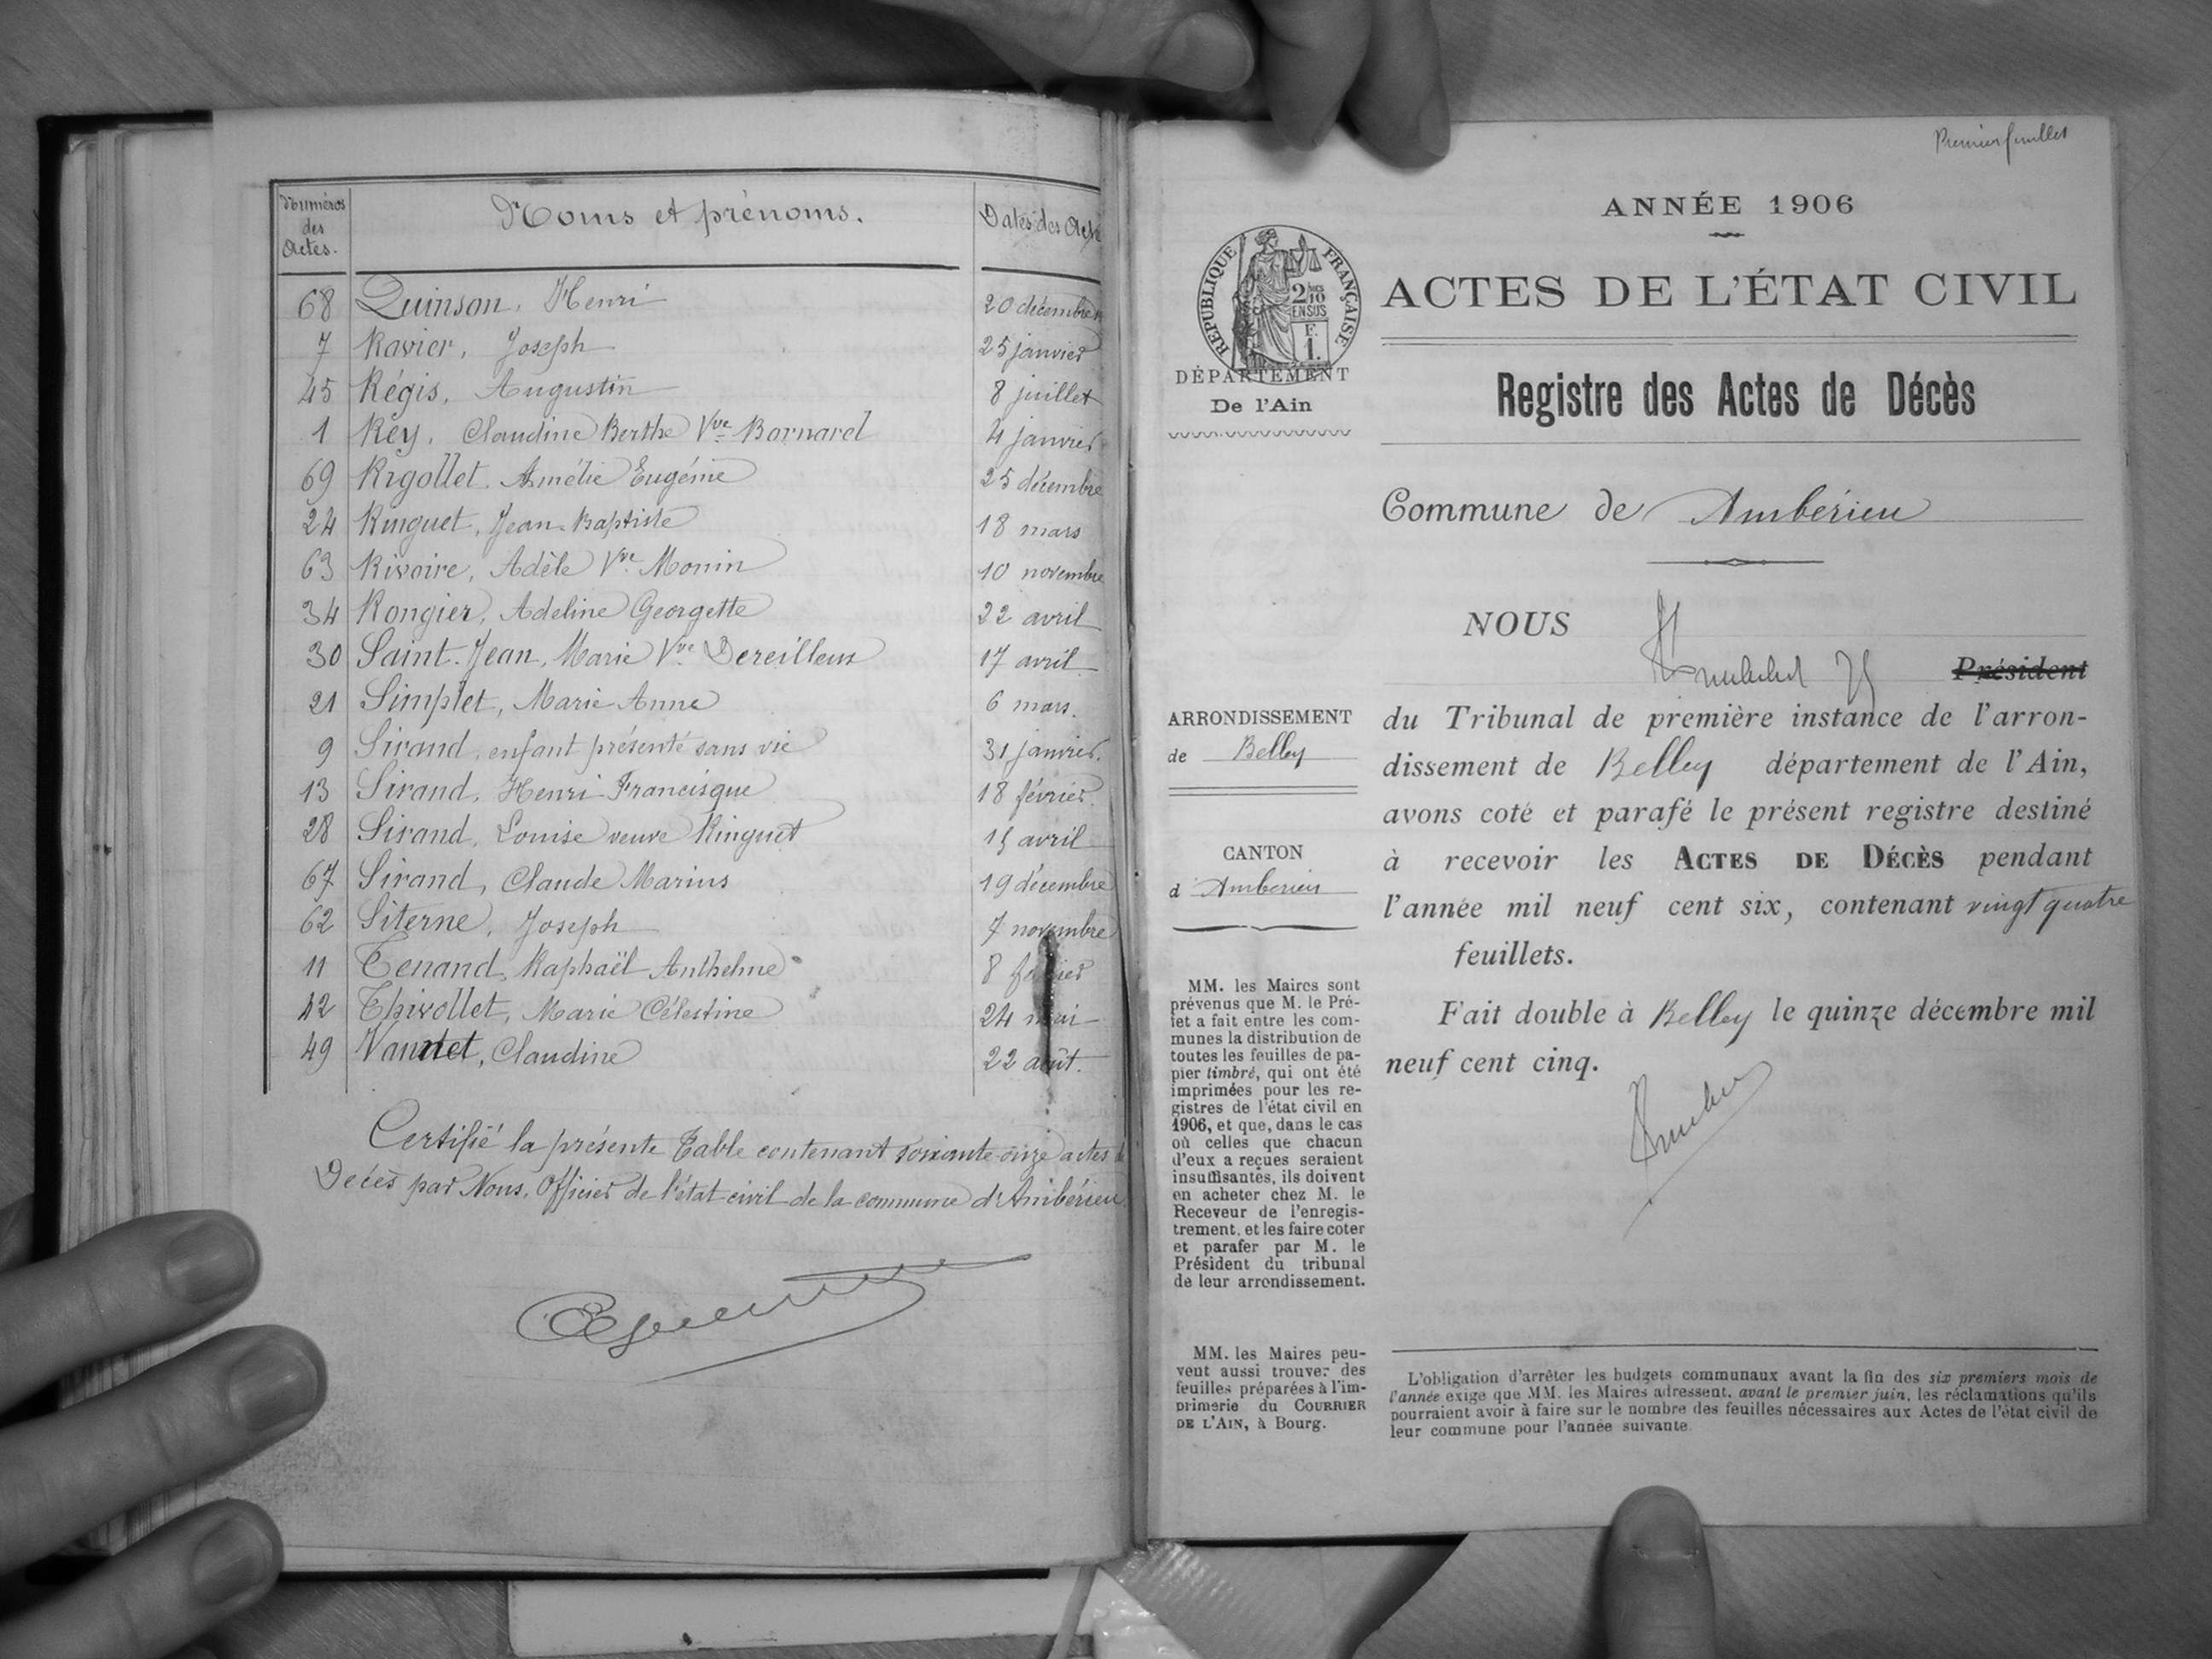 Numéros des Actes. Noms et prénoms. Dates des Actes
68 Quinson, Henri 20 décembre
7 Ravier, Joseph 25 janvier
45 Régis, Augustin 8 juillet
1 Rey, Claudine Berthe Vve Bornarel 4 janvier
69 Rigollet, Amélie Eugénie 25 décembre
24 Ringuet, Jean-Baptiste 18 mars
63 Rivoire, Adèle Vve Monin 10 novembre
34 Rongier, Adeline Georgette 22 avril
30 Saint-Jean, Marie Vve 17 avril
21 Simplet, Marie Anne 6 mars.
9 Sirand, enfant présenté sans vie 31 janvier.
13 Sirand, Henri Francisque 18 février.
28 Sirand, Louise veuve Ringuet 15 avril
67 Sirand, Claude Marius 19 décembre
62 Siterne, Joseph 7 novembre
11 Tenand, Raphaël Anthelme 8 février
42 Thivollet, Marie Célestine 24 mai
49 Claudine 22 août.
Certifié la présente Table contenant soixante-onze actes de
Décès par Nous, Officier de l'état civil de la commune d'Ambérieu
Premier feuillet
ANNÉE 1906
RÉPUBLIQUE FRANÇAISE
2/10 EN SUS
F. 1.
ACTES DE L'ÉTAT CIVIL
DÉPARTEMENT
De l'Ain
Registre des Actes de Décès
Commune de Ambérieu
NOUS
Président
ARRONDISSEMENT
de Belley
CANTON
d'Ambérieu
du Tribunal de première instance de l'arron-
dissement de Belley département de l'Ain,
avons coté et parafé le présent registre destiné
à recevoir les ACTES DE DÉCÈS pendant
l'année mil neuf cent six, contenant vingt quatre
feuillets.
Fait double à Belley le quinze décembre mil
neuf cent cinq.
MM. les Maires sont
prévenus que M. le Pré-
fet a fait entre les com-
munes la distribution de
toutes les feuilles de pa-
pier timbré, qui ont été
imprimées pour les re-
gistres de l'état civil en
1906, et que, dans le cas
où celles que chacun
d'eux a reçues seraient
insuffisantes, ils doivent
en acheter chez M. le
Receveur de l'enregis-
trement, et les faire coter
et parafer par M. le
Président du tribunal
de leur arrondissement.
MM. les Maires peu-
vent aussi trouver des
feuilles préparées à l'im-
primerie du COURRIER
DE L'AIN, à Bourg.
L'obligation d'arrêter les budgets communaux avant la fin des six premiers mois de
l'année exige que MM. les Maires adressent, avant le premier juin, les réclamations qu'ils
pourraient avoir à faire sur le nombre des feuilles nécessaires aux Actes de l'état civil de
leur commune pour l'année suivante.